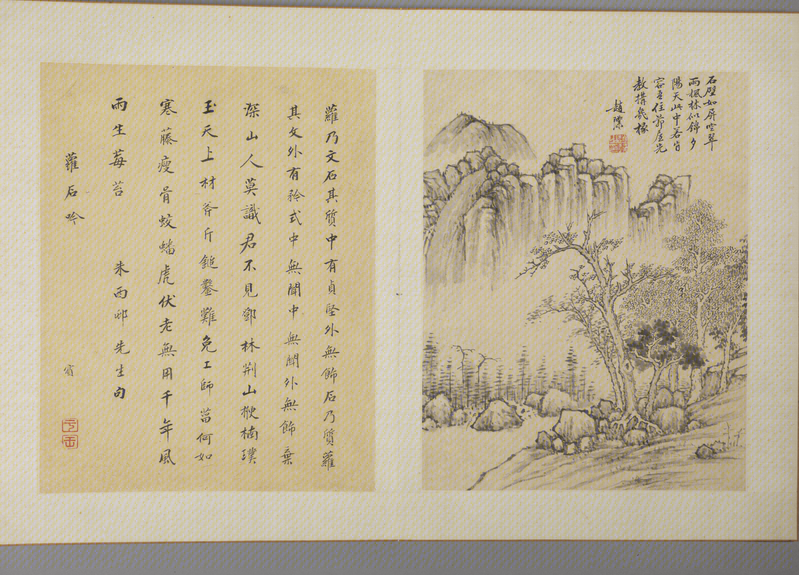 石壁如屏空翠
雨楓林似錦夕
陽天此中若肯
容吾住茆屋先
教搆幾椽
趙
蘿乃文石其質中有貞堅外無飾石乃質蘿
其文外有矜式中無聞中無聞外無飾棄
深山人莫識君不見鄧林荆山楸楠璞
玉天上材斧斤鎚鑿難免工師菑何如
寒藤瘦骨蛟蟠虎伏老無用千年風
雨生莓苔 朱西邨先生句
蘿石吟